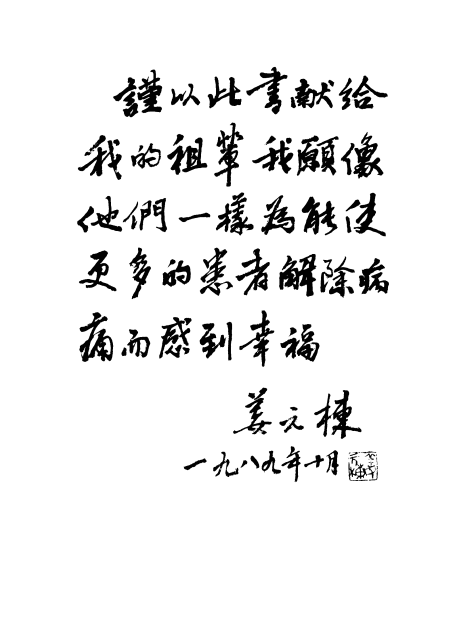 謹以此書献给
我的祖輩我願像
他們一樣為能使
更多的患者解除病
痛而感到幸福
姜元棟
一九八九年十月